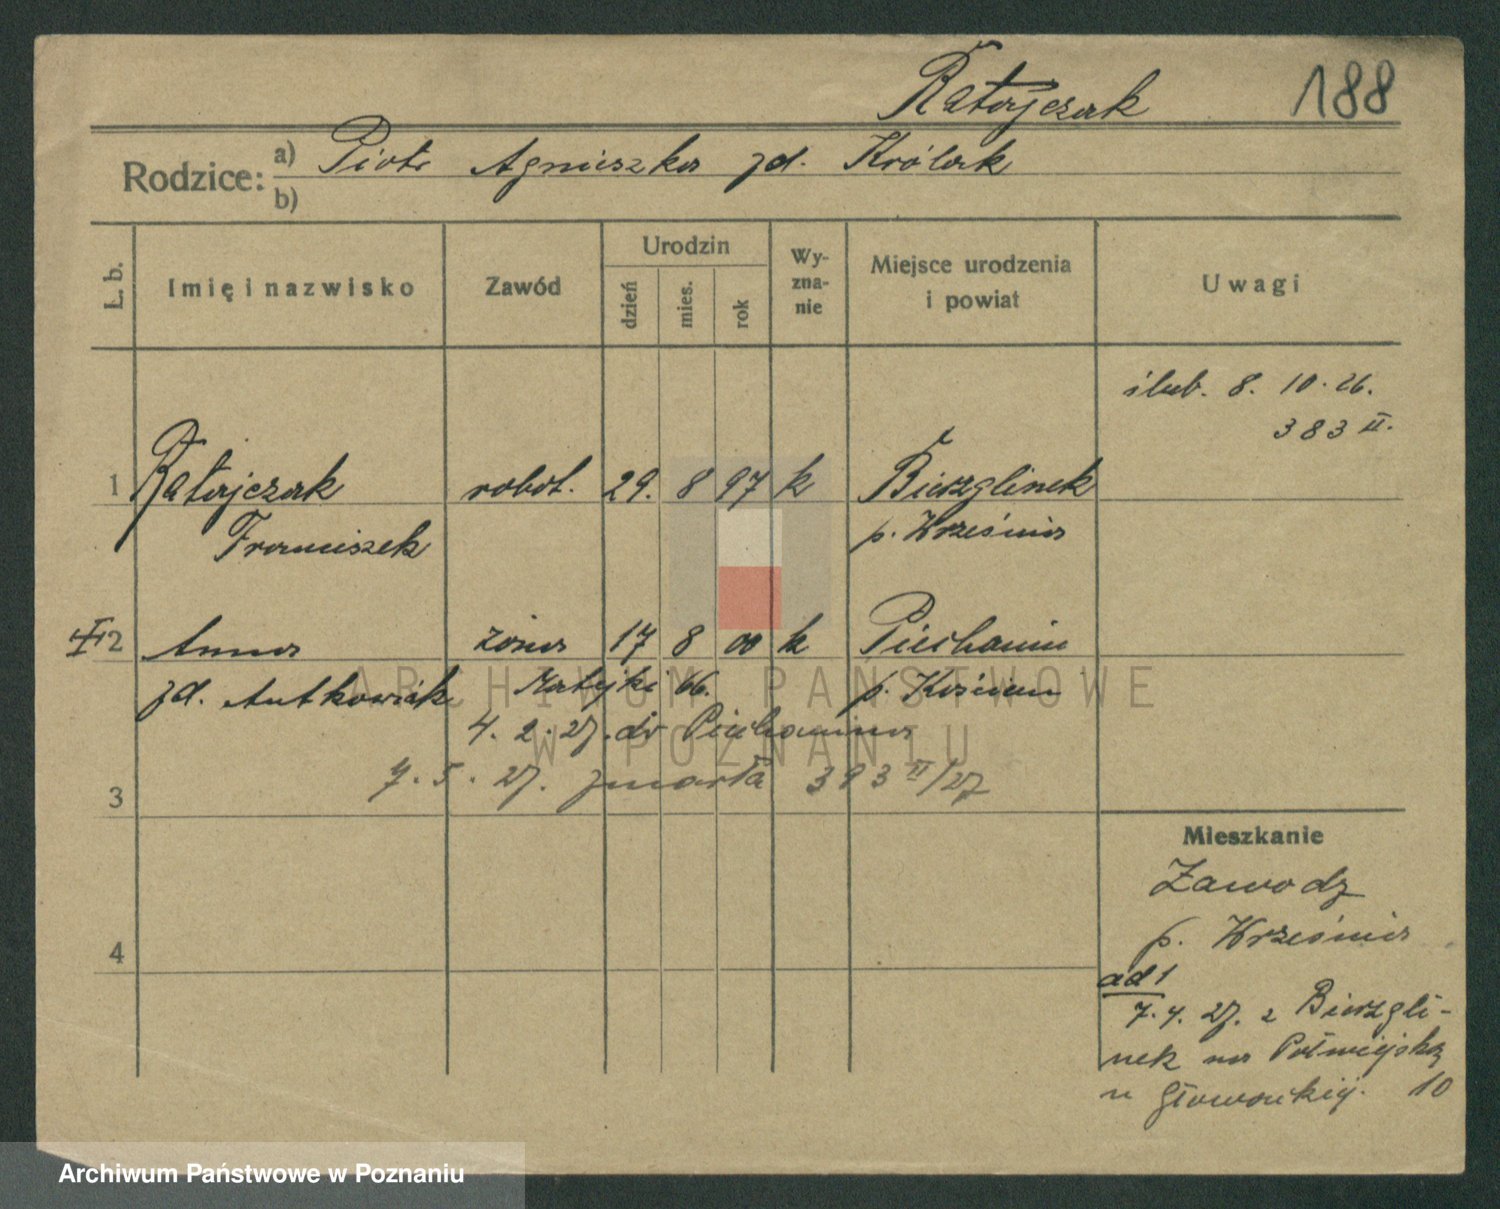 Ratajczak 188
Rodzice: a) Piotr Agnieszka zd. Królak
b)
L. b. Imię i nazwisko Zawód Urodzin dzień mies. rok Wyznanie Miejsce urodzenia i powiat Uwagi
ślub. 8. 10. 26.
383 II.
1 Ratajczak robot. 29. 8 97 k Bierzglinek
Franciszek p. Września
2 Anna żona 17 8 00 k Piechanin
zd. Antkowiak Matejki 66. p. Kościan
4. 2. 27. do Piechanina
7. 5. 27. zmarła 383 II/27
3
Mieszkanie
Zawodz
p. Września
4
ad 1
7. 4. 27. z Bierzgli-
nek na Półwiejską
u Głowackiej. 10
ARCHIWUM PAŃSTWOWE
W POZNANIU
Archiwum Państwowe w Poznaniu